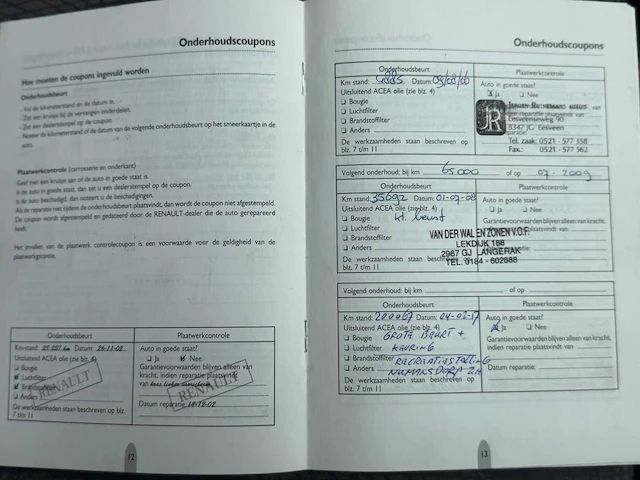 Onderhoudscoupons
Hoe moeten de coupons ingevuld worden
Onderhoudsbeurt
- Vul de kilometerstand en de datum in.
- Zet een kruisje bij de vervangen onderdelen.
- Zet een dealerstempel op de coupon.
- Noteer de kilometerstand of de datum van de volgende onderhoudsbeurt op het smeerkaartje in de
auto.
Plaatwerkcontrole (carrosserie en onderkant)
Geef met een kruisje aan of de auto in goede staat is.
Is de auto in goede staat, dan zet u een dealerstempel op de coupon.
Is de auto beschadigd, dan noteert u de beschadigingen.
Als de reparatie niet tijdens de onderhoudsbeurt plaatsvindt, dan wordt de coupon niet afgestempeld.
De coupon wordt afgestempeld en gedateerd door de RENAULT-dealer die de auto gerepareerd
heeft.
Het invullen van de plaatwerk controlecoupon is een voorwaarde voor de geldigheid van de
plaatwerkgarantie.
Onderhoudsbeurt Plaatwerkcontrole
Km-stand: Datum: 26-11-02 Auto in goede staat?
Uitsluitend ACEA olie (zie blz. 4) Ja Nee
Bougie Garantievoorwaarden blijven alleen van
Luchtfilter kracht, indien reparatie plaatsvindt
Brandstoffilter van
Anders RENAULT RENAULT
De werkzaamheden staan beschreven op blz. Datum reparatie: 18-12-02
7 t/m 11
12
Onderhoudscoupons
Onderhoudsbeurt Plaatwerkcontrole
Km stand: Datum: Auto in goede staat?
Uitsluitend ACEA olie (zie blz. 4) X Ja Nee
Bougie
Luchtfilter Lesweenseweg 90
Brandstoffilter 8347 JC Eesveen
Anders Tel. zaak: 0521 - 577 358
De werkzaamheden staan beschreven op Fax.: 0521 - 577 962
blz. 7 t/m 11
Volgend onderhoud: bij km 65000 of op 07-2009
Onderhoudsbeurt Plaatwerkcontrole
Km stand: 35692 Datum: 01-07-08 Auto in goede staat?
Uitsluitend ACEA olie (zie blz. 4) Ja Nee
Bougie kl. beurt Garantievoorwaarden blijven alleen van kracht,
Luchtfilter indien reparatie plaatsvindt van
Brandstoffilter VAN DER WAL EN ZONEN V.O.F.
Anders LEKDIJK 188
De werkzaamheden staan beschreven op 2967 GJ LANGERAK
blz. 7 t/m 11 TEL. 0184 - 602888
Volgend onderhoud: bij km of op
Onderhoudsbeurt Plaatwerkcontrole
Km stand: 200067 Datum: 04-02-17 Auto in goede staat?
Uitsluitend ACEA olie (zie blz. 4) Ja Nee
Bougie GROTE BEURT + Garantievoorwaarden blijven alleen van kracht,
Luchtfilter KEURING indien reparatie plaatsvindt van
Brandstoffilter RECREATIESTALLING
Anders NUMANSDORP Z.H Datum reparatie:
De werkzaamheden staan beschreven op
blz. 7 t/m 11
13